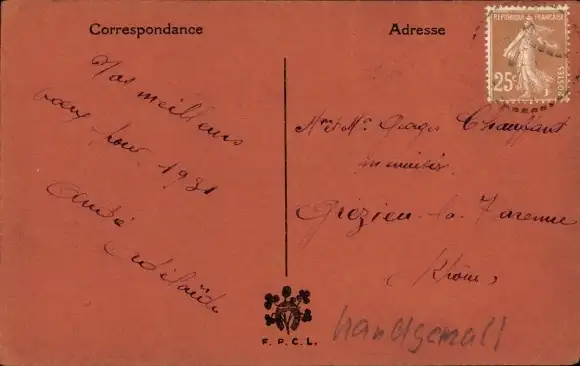 Correspondance
Adresse
REPUBLIQUE FRANÇAISE
25c
POSTES
Nos meilleurs
vœux pour 1931
André
Adélaïde
Mme et Mr Georges Chauffant
menuisier
Grézieu-la-Varenne
(Rhône)
F. P. C. L.
handgemalt